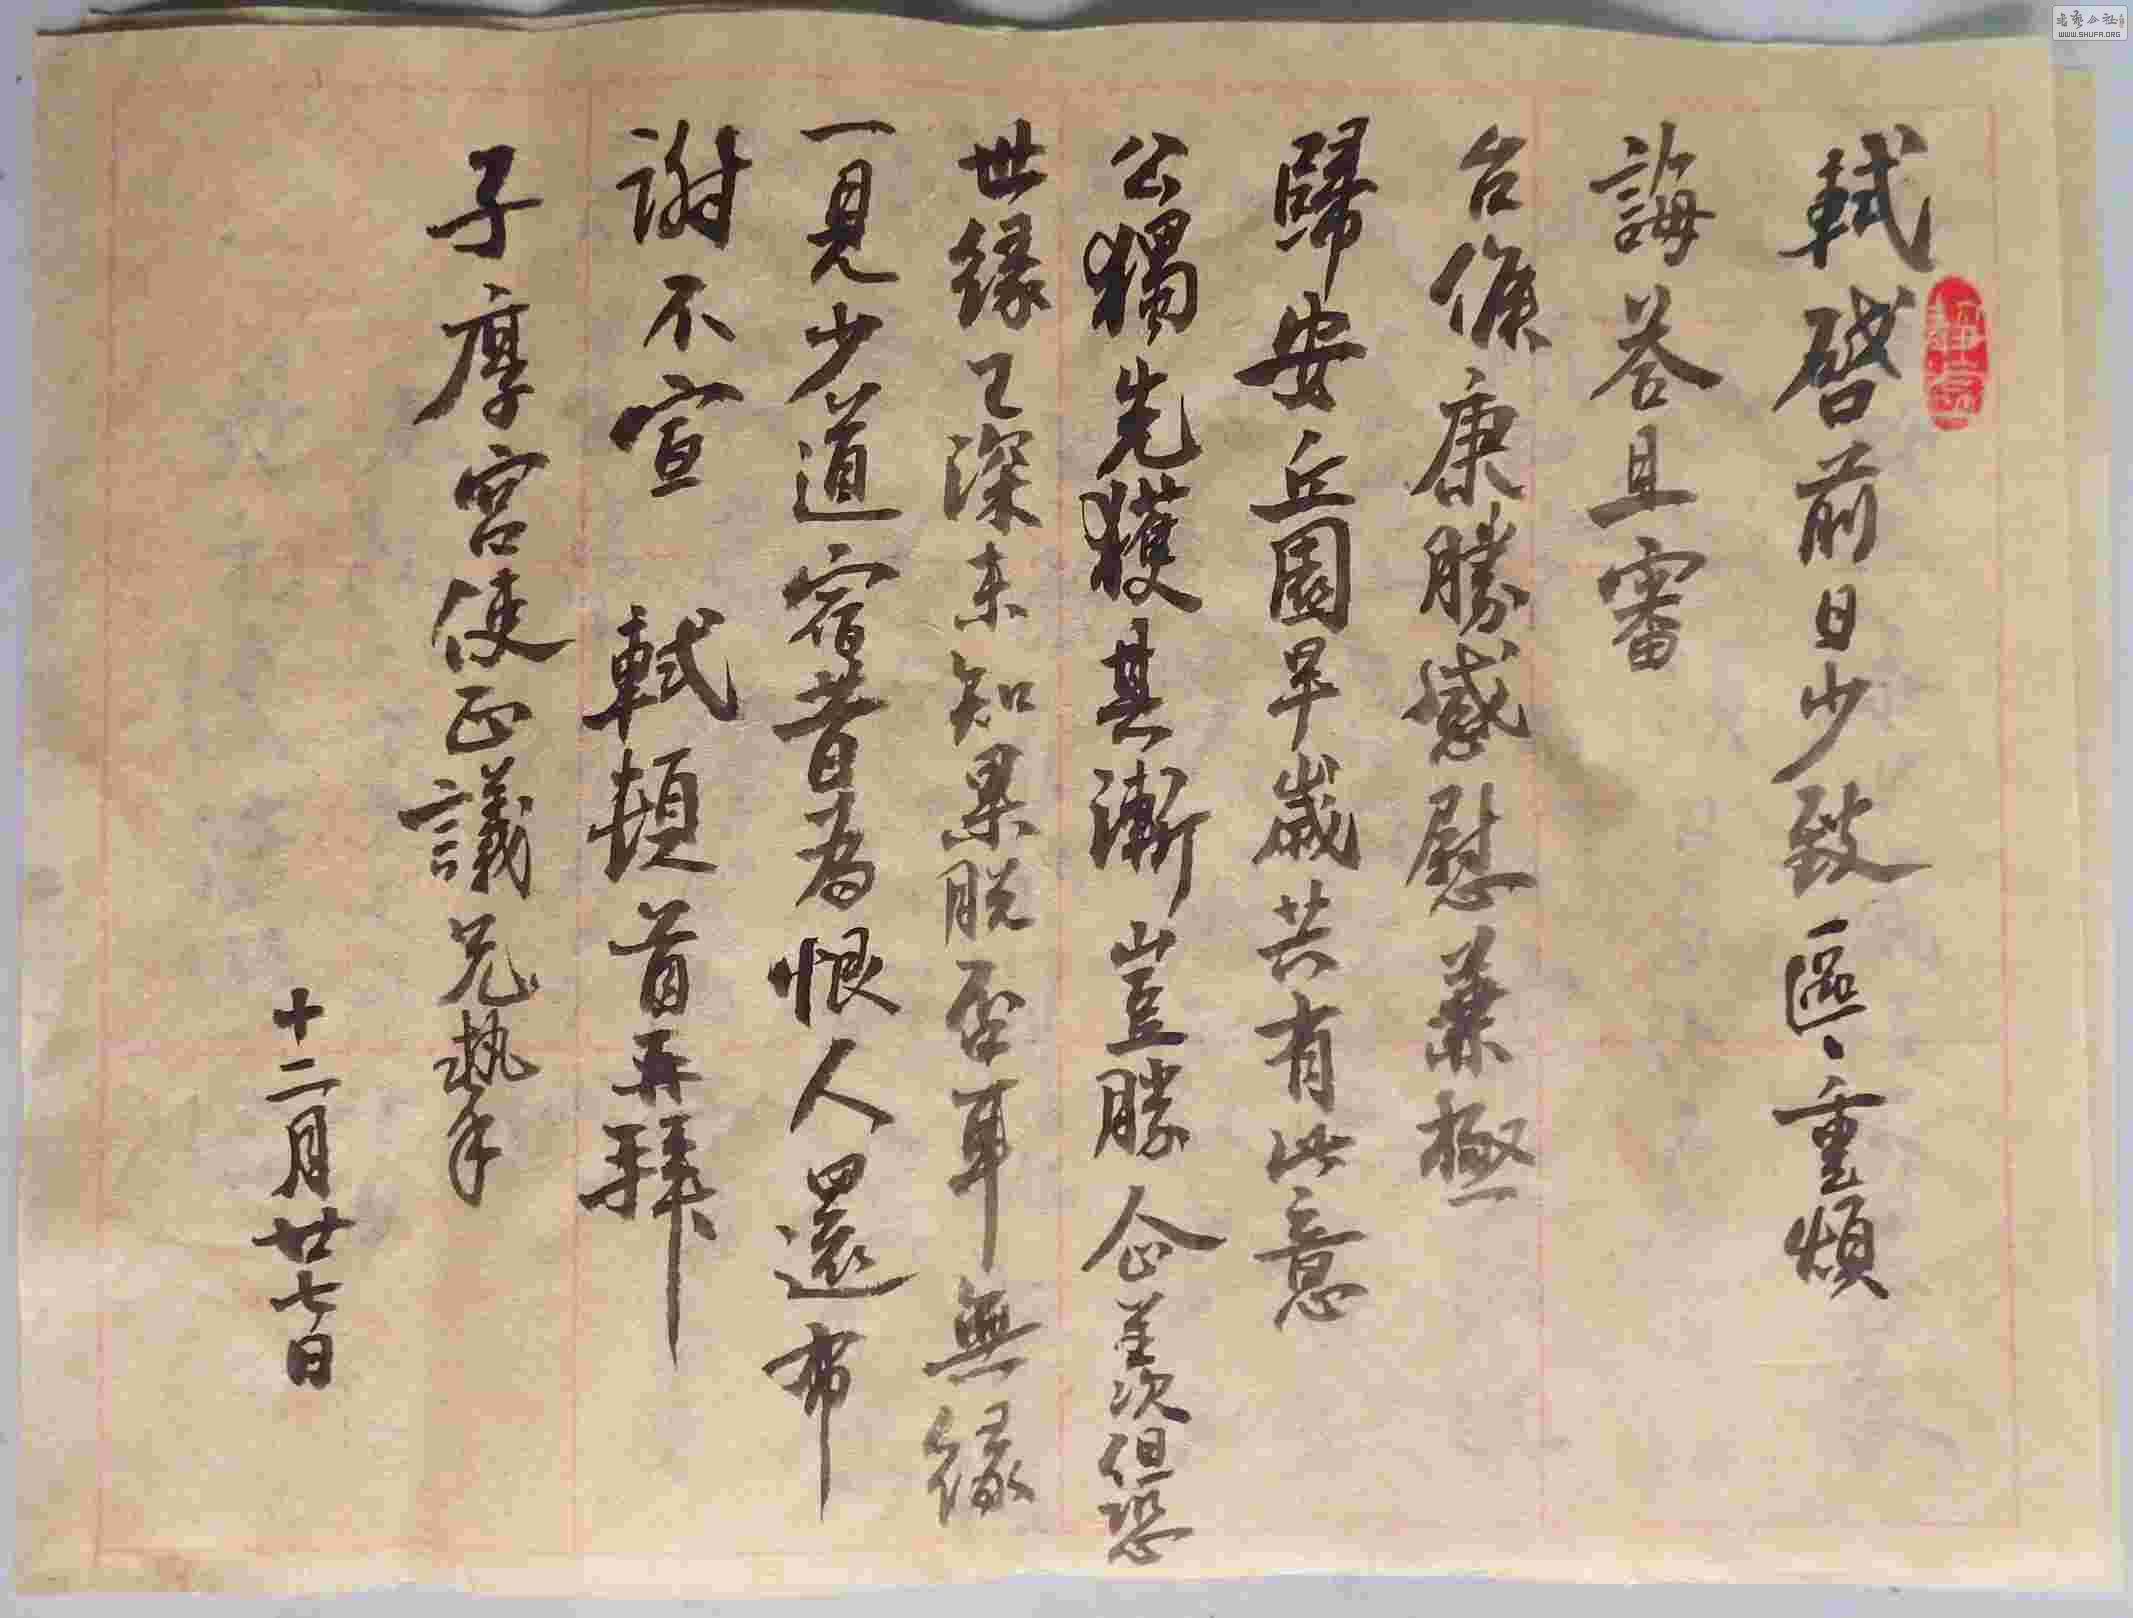 軾啓前日少致區〻重煩
誨荅且審
台候康勝感慰兼極
歸安丘園早歲共有此意
公獨先獲其漸豈勝企羨次但恐
世緣已深未知果脱否耳無緣
一見少道宿昔為恨人還布
謝不宣 軾頓首再拜
子厚宮使正議兄執事
十二月廿七日
WWW.SHUFA.ORG